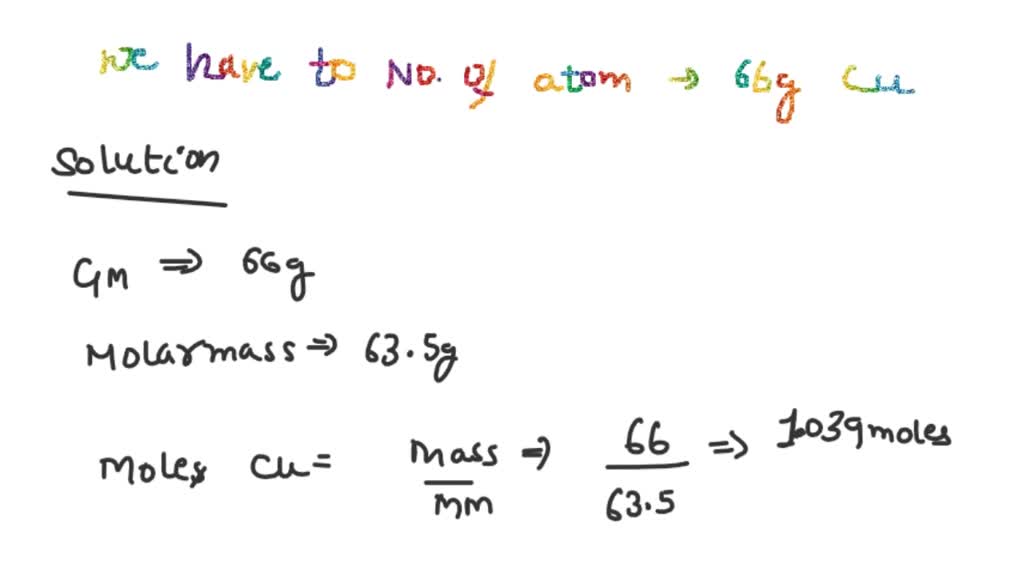 we have to No. of atom → 66g Cu
Solution
GM ⇒ 66g
Molarmass ⇒ 63.5g
Moles Cu = mass/mm ⇒ 66/63.5 ⇒ 1.039moles